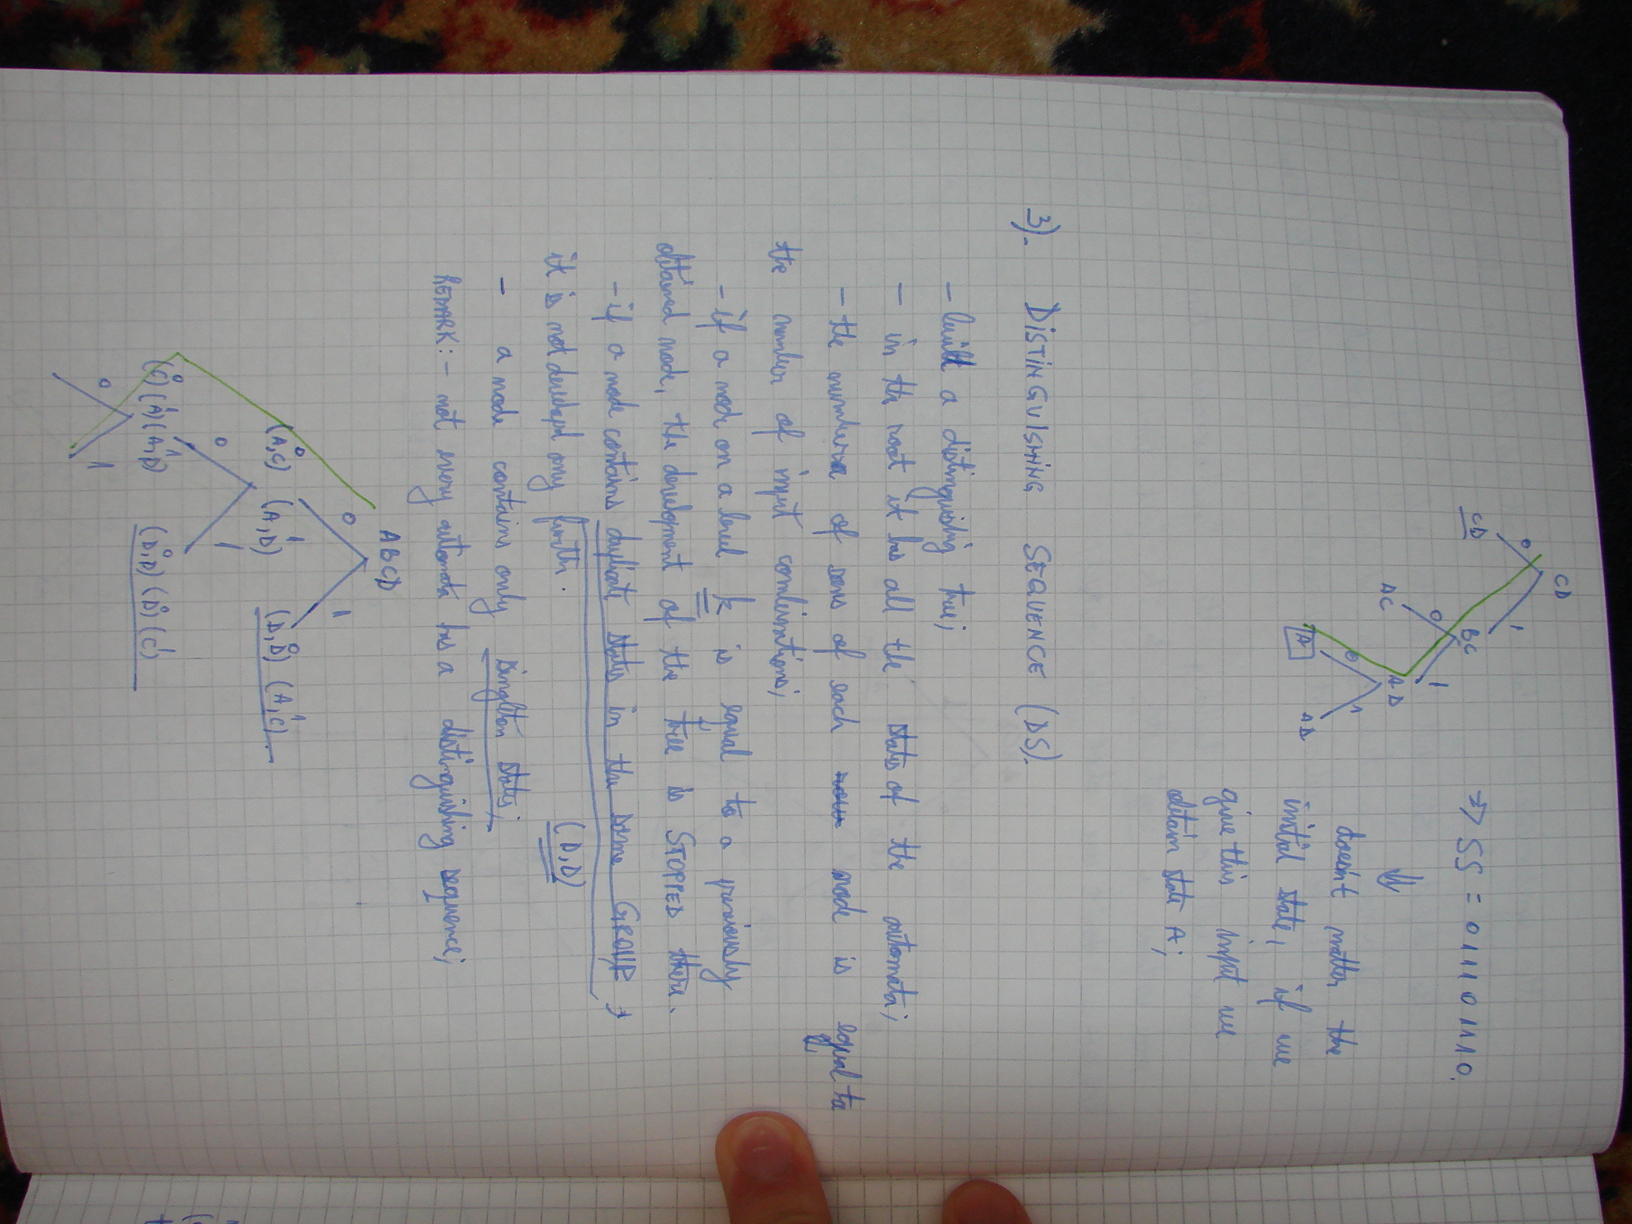 CD
0 1
CD BC
0 1
AC AD
0 1
A AD
=> SS = 01111 01110.
doesn't matter the
initial state, if we
give this input we
obtain state A;
3). DISTINGUISHING SEQUENCE (DS).
- built a distinguishing tree;
- in the root it has all the states of the automata;
- the number of sons of each node is equal to
the number of input combinations;
- if a node on a level k is equal to a previously
obtained node, the development of the tree is STOPPED there.
- if a node contains duplicate states in the same GROUP,
it is not developed any furth. (D,D)
- a node contains only singleton states;
REMARK: - not every automata has a distinguishing sequence;
ABCD
0 1
(A,C)⁰ (A,D)¹ (D,D)⁰ (A,C)¹
0 1
(C)⁰ (A)¹ (A,D)¹ (D,D)⁰ (D)⁰ (C)¹
0 1